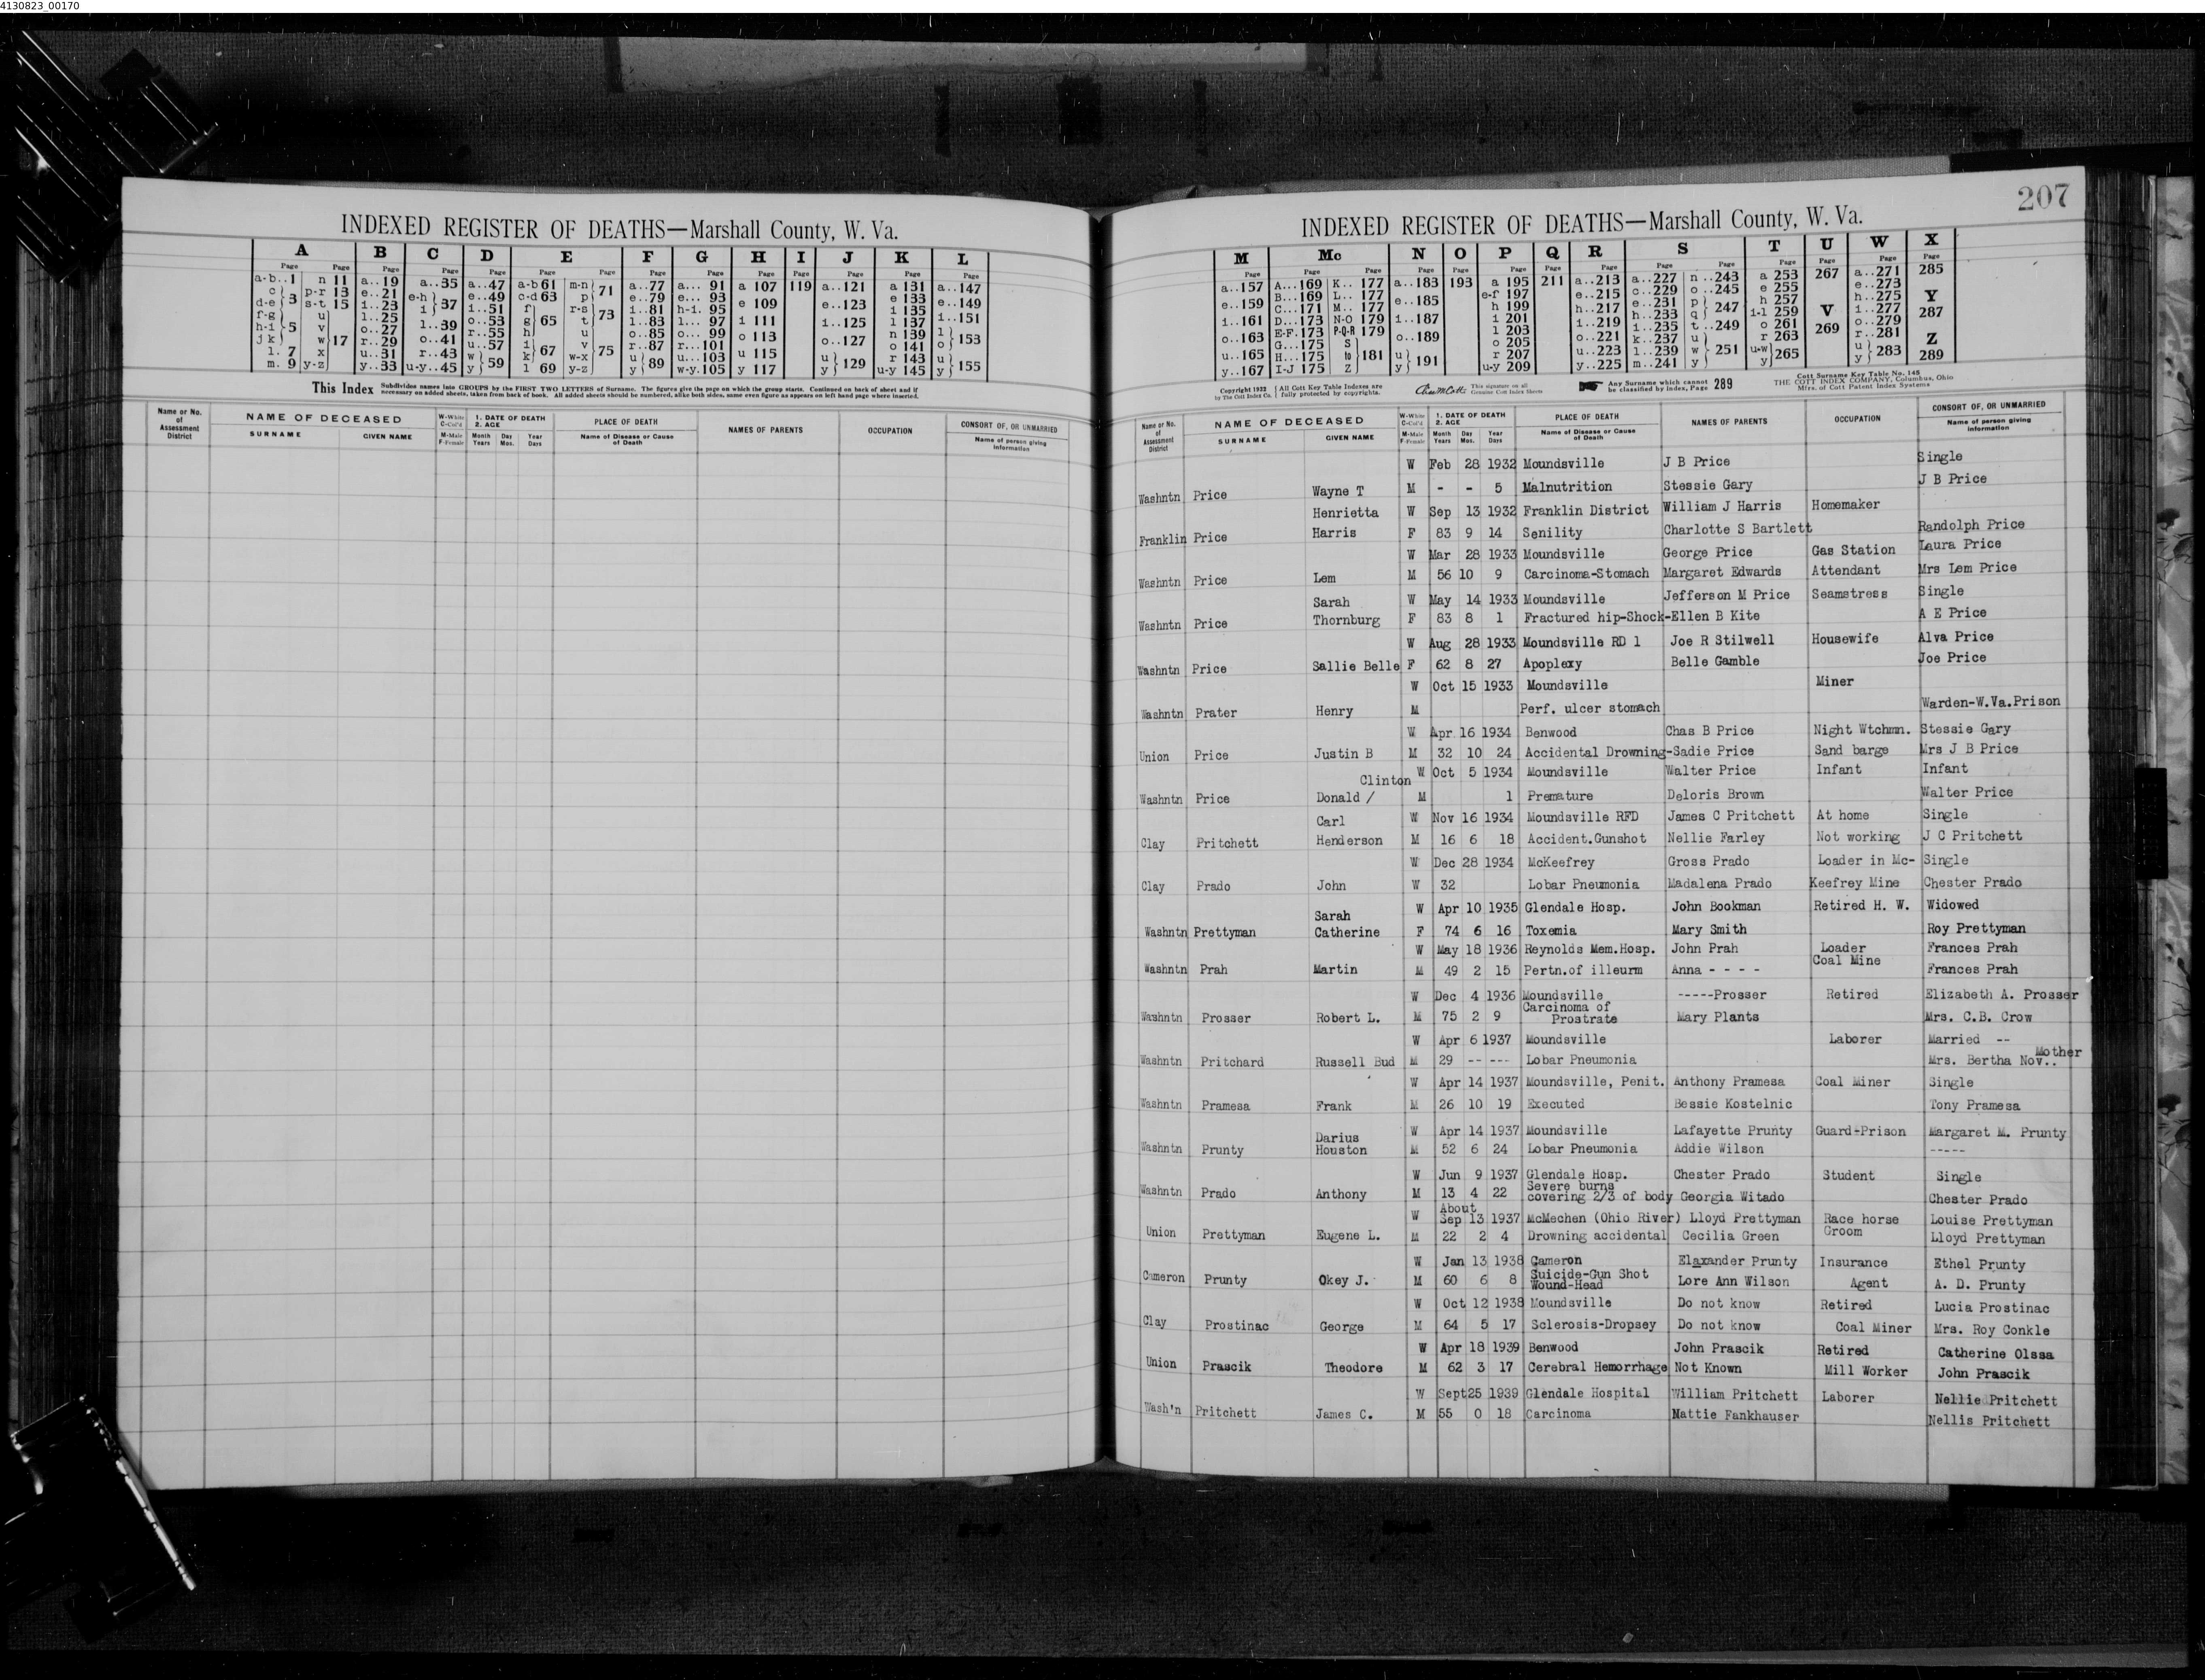 4130823_00170
INDEXED REGISTER OF DEATHS—Marshall County, W. Va.
A B C D E F G H I J K L
Page Page Page Page Page Page Page Page Page Page Page Page Page Page
a-b..1 n 11 a..19 a..35 a..47 a-b 61 m-n 71 a..77 a... 91 a 107 119 a..121 a 131 a..147
c 3 p-r 13 e..21 e-h 37 e..49 c-d 63 p e..79 e... 93 e 109 e..123 e 133 e..149
d-e s-t 15 i..23 i i..51 f 65 r-s 73 i..81 h-i. 95 i 111 i..125 i 135 i..151
f-g 5 u 17 l..25 l..39 o..53 g t l..83 l... 97 o 113 o..127 l 137 l 153
h-i v o..27 o..41 r..55 h u 75 o..85 o... 99 u 115 u 129 n 139 o
j k w r..29 r..43 u..57 i 67 v r..87 r...101 y 117 y o 141 u 155
l. 7 x u..31 u-y..45 w 59 k w-x u 89 u...103 r 143 y
m. 9 y-z y..33 y l 69 y-z y w-y.105 u-y 145
This Index Subdivides names into GROUPS by the FIRST TWO LETTERS of Surname. The figures give the page on which the group starts. Continued on back of sheet and if
necessary on added sheets, taken from back of book. All added sheets should be numbered, alike both sides, same even figure as appears on left hand page where inserted.
Name or No. of Assessment District
NAME OF DECEASED
SURNAME GIVEN NAME
W-White C-Col'd M-Male F-Female
1. DATE OF DEATH 2. AGE
Month Day Year
Years Mos. Days
PLACE OF DEATH
Name of Disease or Cause of Death
NAMES OF PARENTS
OCCUPATION
CONSORT OF, OR UNMARRIED
Name of person giving information
207
INDEXED REGISTER OF DEATHS—Marshall County, W. Va.
M Mc N O P Q R S T U W X
Page Page Page Page Page Page Page Page Page Page Page Page Page Page
a..157 A...169 K.. 177 a..183 193 a 195 211 a..213 a..227 n ..243 a 253 267 a..271 285
e..159 B...169 L... 177 e..185 e-f 197 e..215 c..229 o ..245 e 255 e..273
i..161 C...171 M.. 177 i..187 h 199 h..217 e..231 p 247 h 257 V h..275 Y
o..163 D...173 N-O 179 o..189 i 201 i..219 h..233 q i-l 259 269 i..277 287
u..165 E-F.173 P-Q-R 179 u 191 l 203 o..221 i..235 t ..249 o 261 o..279 Z
y..167 G...175 S 181 y o 205 u..223 k..237 u 251 r 263 r..281 289
H...175 to r 207 y..225 l..239 w u-w 265 u 283
I-J 175 Z u-y 209 m..241 y y y
Copyright 1922 by The Cott Index Co. All Cott Key Table Indexes are fully protected by copyrights.
This signature on all Genuine Cott Index Sheets
Any Surname which cannot be classified by index, Page 289
Cott Surname Key Table No. 145
THE COTT INDEX COMPANY, Columbus, Ohio
Mfrs. of Cott Patent Index Systems
Name or No. of Assessment District
NAME OF DECEASED
SURNAME GIVEN NAME
W-White C-Col'd M-Male F-Female
1. DATE OF DEATH 2. AGE
Month Day Year
Years Mos. Days
PLACE OF DEATH
Name of Disease or Cause of Death
NAMES OF PARENTS
OCCUPATION
CONSORT OF, OR UNMARRIED
Name of person giving information
W Feb 28 1932 Moundsville J B Price Single
Washntn Price Wayne T M - - 5 Malnutrition Stessie Gary J B Price
Henrietta W Sep 13 1932 Franklin District William J Harris Homemaker
Franklin Price Harris F 83 9 14 Senility Charlotte S Bartlett Randolph Price
W Mar 28 1933 Moundsville George Price Gas Station Laura Price
Washntn Price Lem M 56 10 9 Carcinoma-Stomach Margaret Edwards Attendant Mrs Lem Price
Sarah W May 14 1933 Moundsville Jefferson M Price Seamstress Single
Washntn Price Thornburg F 83 8 1 Fractured hip-Shock-Ellen B Kite A E Price
W Aug 28 1933 Moundsville RD 1 Joe R Stilwell Housewife Alva Price
Washntn Price Sallie Belle F 62 8 27 Apoplexy Belle Gamble Joe Price
W Oct 15 1933 Moundsville Miner
Washntn Prater Henry M Perf. ulcer stomach Warden-W.Va.Prison
W Apr 16 1934 Benwood Chas B Price Night Wtchmn. Stessie Gary
Union Price Justin B M 32 10 24 Accidental Drowning-Sadie Price Sand barge Mrs J B Price
Clinton W Oct 5 1934 Moundsville Walter Price Infant Infant
Washntn Price Donald / M 1 Premature Deloris Brown Walter Price
Carl W Nov 16 1934 Moundsville RFD James C Pritchett At home Single
Clay Pritchett Henderson M 16 6 18 Accident.Gunshot Nellie Farley Not working J C Pritchett
W Dec 28 1934 McKeefrey Gross Prado Loader in Mc- Single
Clay Prado John W 32 Lobar Pneumonia Madalena Prado Keefrey Mine Chester Prado
Sarah W Apr 10 1935 Glendale Hosp. John Bookman Retired H. W. Widowed
Washntn Prettyman Catherine F 74 6 16 Toxemia Mary Smith Roy Prettyman
W May 18 1936 Reynolds Mem.Hosp. John Prah Loader Frances Prah
Washntn Prah Martin M 49 2 15 Pertn.of illeurm Anna - - - - Coal Mine Frances Prah
W Dec 4 1936 Moundsville -----Prosser Retired Elizabeth A. Prosser
Washntn Prosser Robert L. M 75 2 9 Carcinoma of Prostrate Mary Plants Mrs. C.B. Crow
W Apr 6 1937 Moundsville Laborer Married --
Washntn Pritchard Russell Bud M 29 -- --- Lobar Pneumonia Mrs. Bertha Nov.. Mother
W Apr 14 1937 Moundsville, Penit. Anthony Pramesa Coal Miner Single
Washntn Pramesa Frank M 26 10 19 Executed Bessie Kostelnic Tony Pramesa
Darius W Apr 14 1937 Moundsville Lafayette Prunty Guard-Prison Margaret M. Prunty
Washntn Prunty Houston M 52 6 24 Lobar Pneumonia Addie Wilson -----
W Jun 9 1937 Glendale Hosp. Chester Prado Student Single
Washntn Prado Anthony M 13 4 22 Severe burns covering 2/3 of body Georgia Witado Chester Prado
W About Sep 13 1937 McMechen (Ohio River) Lloyd Prettyman Race horse Louise Prettyman
Union Prettyman Eugene L. M 22 2 4 Drowning accidental Cecilia Green Groom Lloyd Prettyman
W Jan 13 1938 Cameron Elaxander Prunty Insurance Ethel Prunty
Cameron Prunty Okey J. M 60 6 8 Suicide-Gun Shot Wound-Head Lore Ann Wilson Agent A. D. Prunty
W Oct 12 1938 Moundsville Do not know Retired Lucia Prostinac
Clay Prostinac George M 64 5 17 Sclerosis-Dropsey Do not know Coal Miner Mrs. Roy Conkle
W Apr 18 1939 Benwood John Prascik Retired Catherine Olssa
Union Prascik Theodore M 62 3 17 Cerebral Hemorrhage Not Known Mill Worker John Prascik
W Sept25 1939 Glendale Hospital William Pritchett Laborer Nellie Pritchett
Wash'n Pritchett James C. M 55 0 18 Carcinoma Mattie Fankhauser Nellis Pritchett